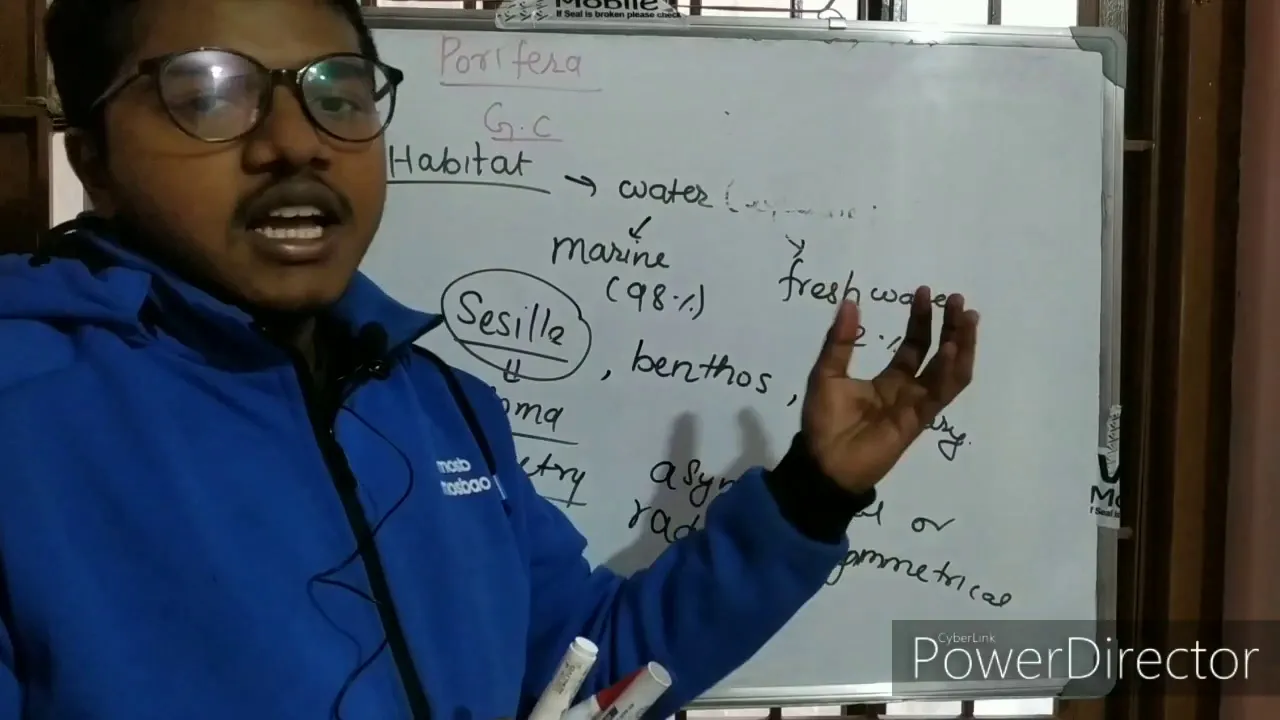 MOBILE
If Seal is broken please check
Porifera
G.C
Habitat → water (
marine
freshwate
(98%)
2%
Sesille, benthos,
oma
etry
asym
al or
rad
ymmetrical
mosb
mosbao
CyberLink
PowerDirector